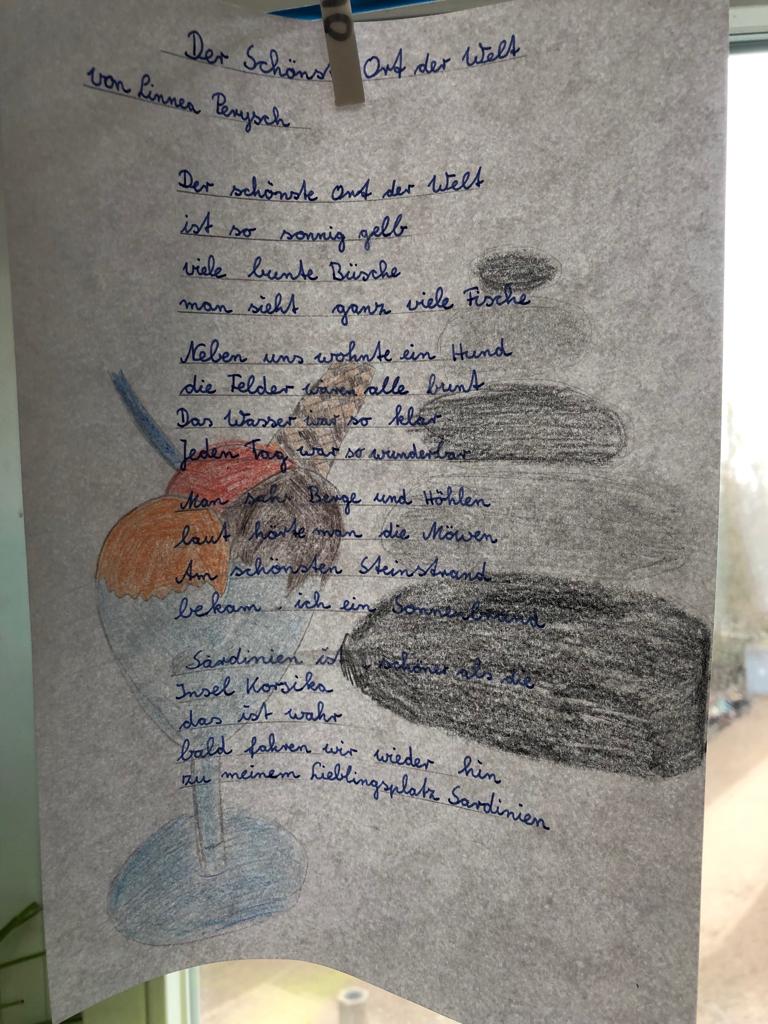 Der Schöns Ort der Welt
von Linnea Perysch
Der schönste Ort der Welt
ist so sonnig gelb
viele bunte Büsche
man sieht ganz viele Fische
Neben uns wohnte ein Hund
die Felder waren alle bunt
Das Wasser war so klar
Jeden Tag war so wunderbar
Man sah Berge und Höhlen
laut hörte man die Möwen
Am schönsten Steinstrand
bekam ich ein Sonnenbrand
Sardinien ist schöner als die
Insel Korsika
das ist wahr
bald fahren wir wieder hin
zu meinem Lieblingsplatz Sardinien